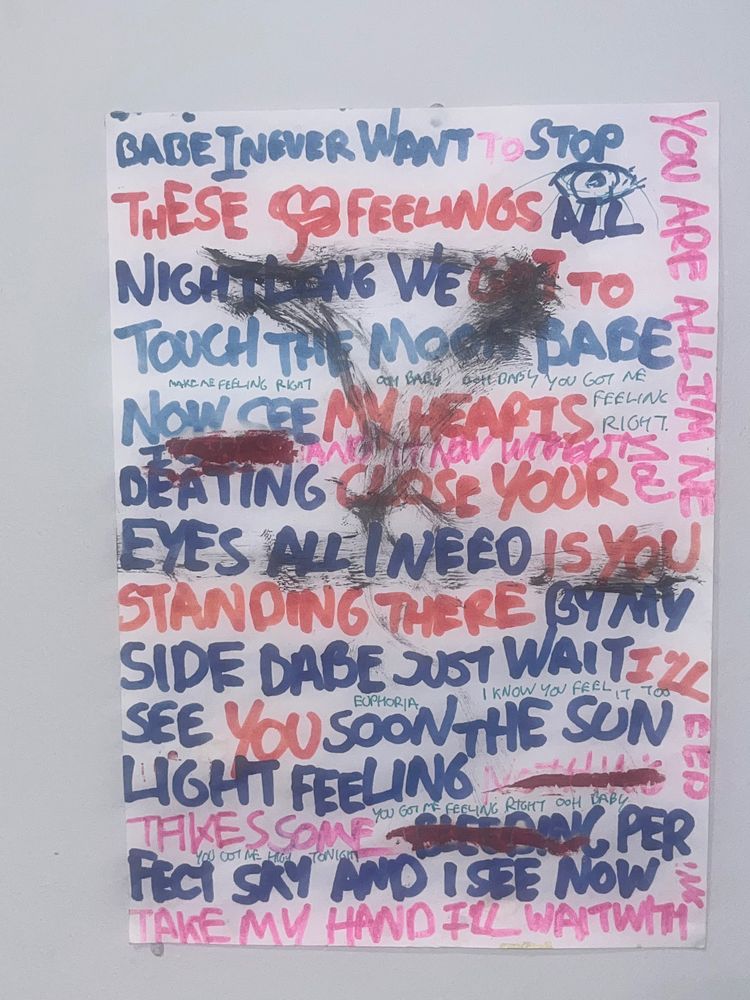 BABE I NEVER WANT TO STOP
THESE FEELINGS ALL
NIGHT LONG WE GOT TO
TOUCH THE MOON BABE
MAKE ME FEELING RIGHT OOH BABY OOH BABY YOU GOT ME
FEELING
RIGHT.
NOW SEE MY HEARTS
AND
BEATING CLOSE YOUR
EYES ALL I NEED IS YOU
STANDING THERE BY MY
SIDE BABE JUST WAIT I'LL
I KNOW YOU FEEL IT TOO
EUPHORIA
SEE YOU SOON THE SUN
LIGHT FEELING
YOU GOT ME FEELING RIGHT OOH BABY
TAKES SOME BLEEDING PER
YOU GOT ME HIGH TONIGHT
FECT SKY AND I SEE NOW
TAKE MY HAND I'LL WAIT WITH
YOU ARE ALL I'M NE
EED